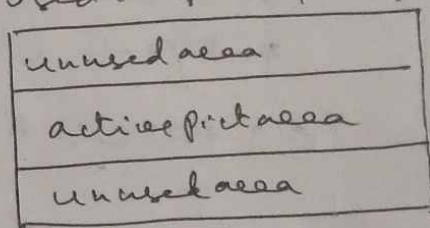 unused area
active pict area
unused area